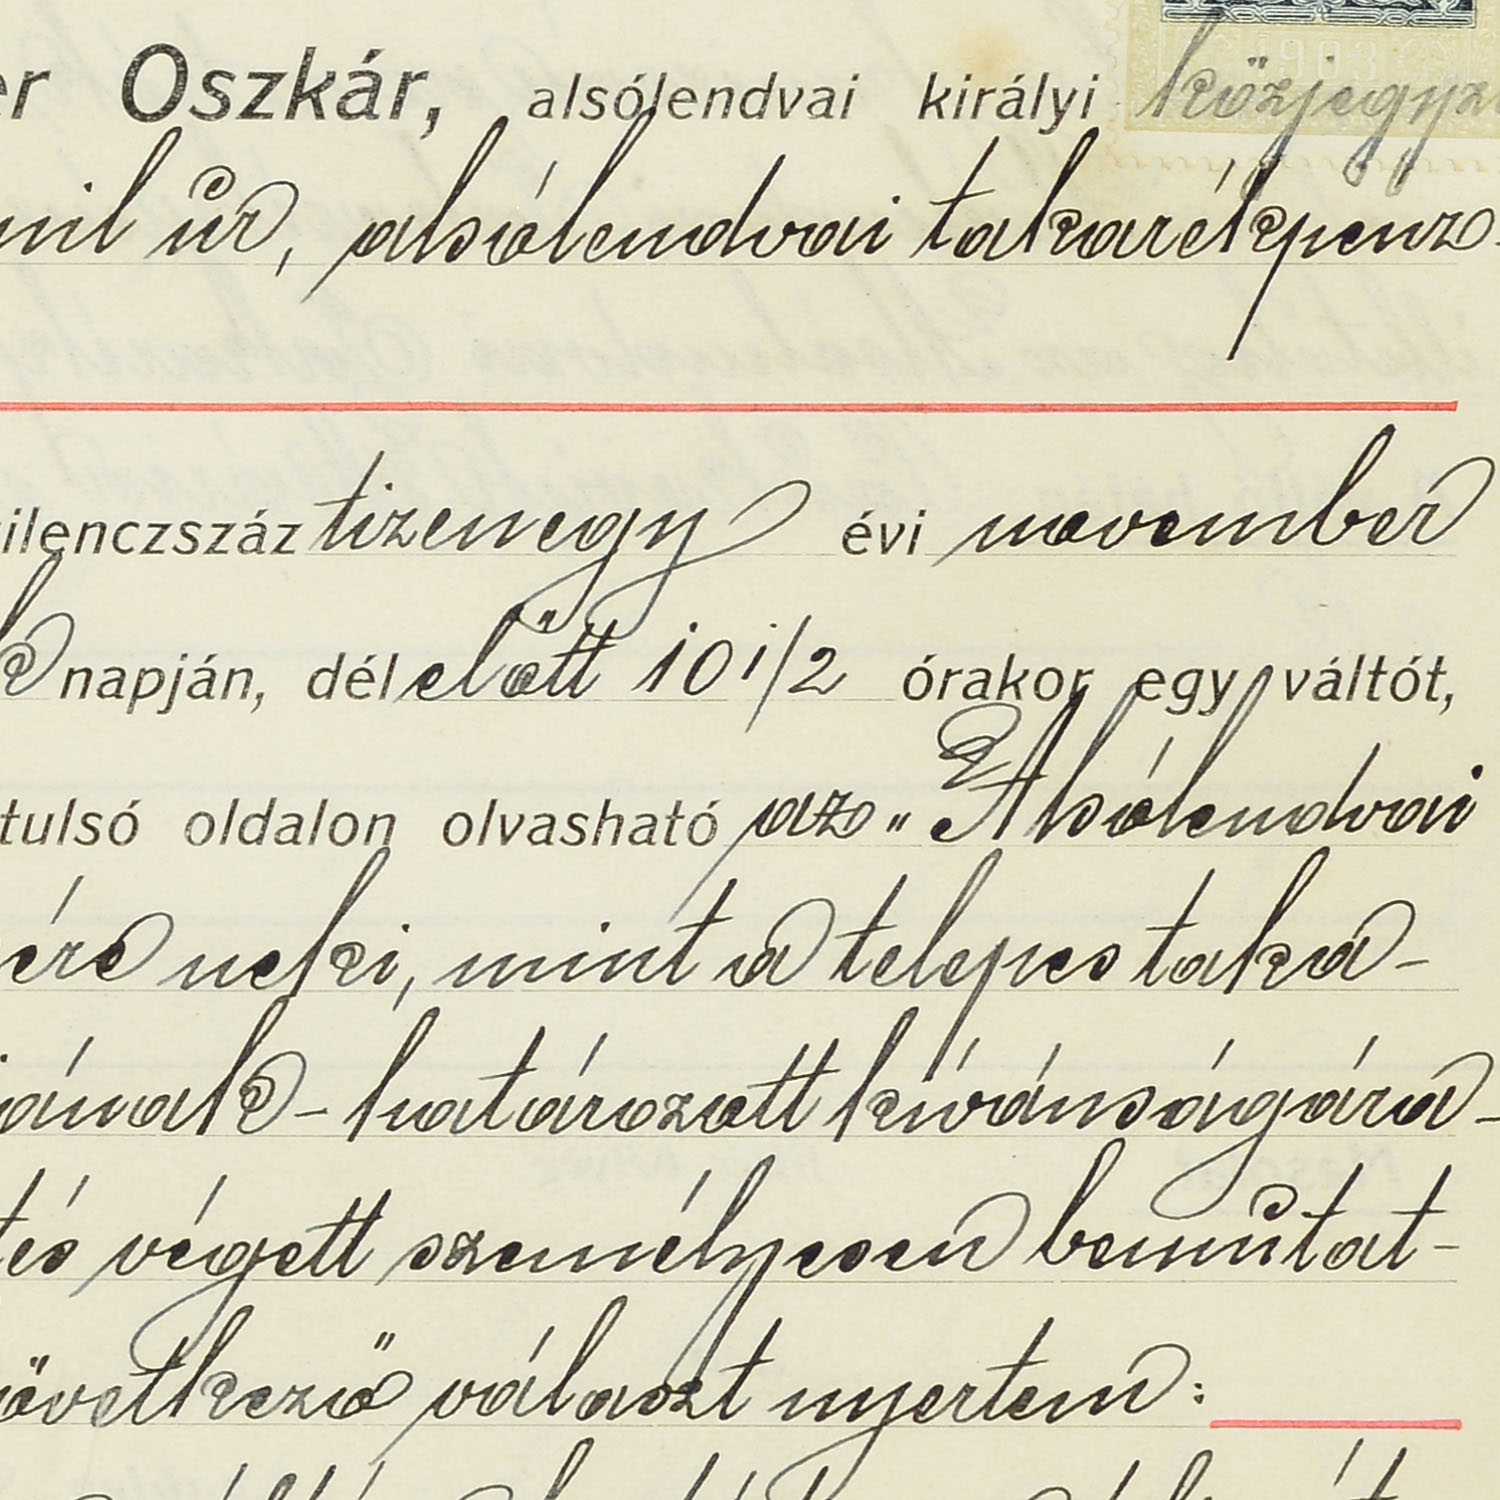 er Oszkár, alsólendvai királyi közjegyző
mil úr, alsólendvai takarékpénz-
ilenczszáz tizenegy évi november
napján, délelőtt 10 1/2 órakor egy váltót,
tulsó oldalon olvasható az „Alsólendvai
ére neki, mint a telepes taka-
jának - határozott kivánságára -
tés végett személyesen bemutat-
övetkező választ nyertem: